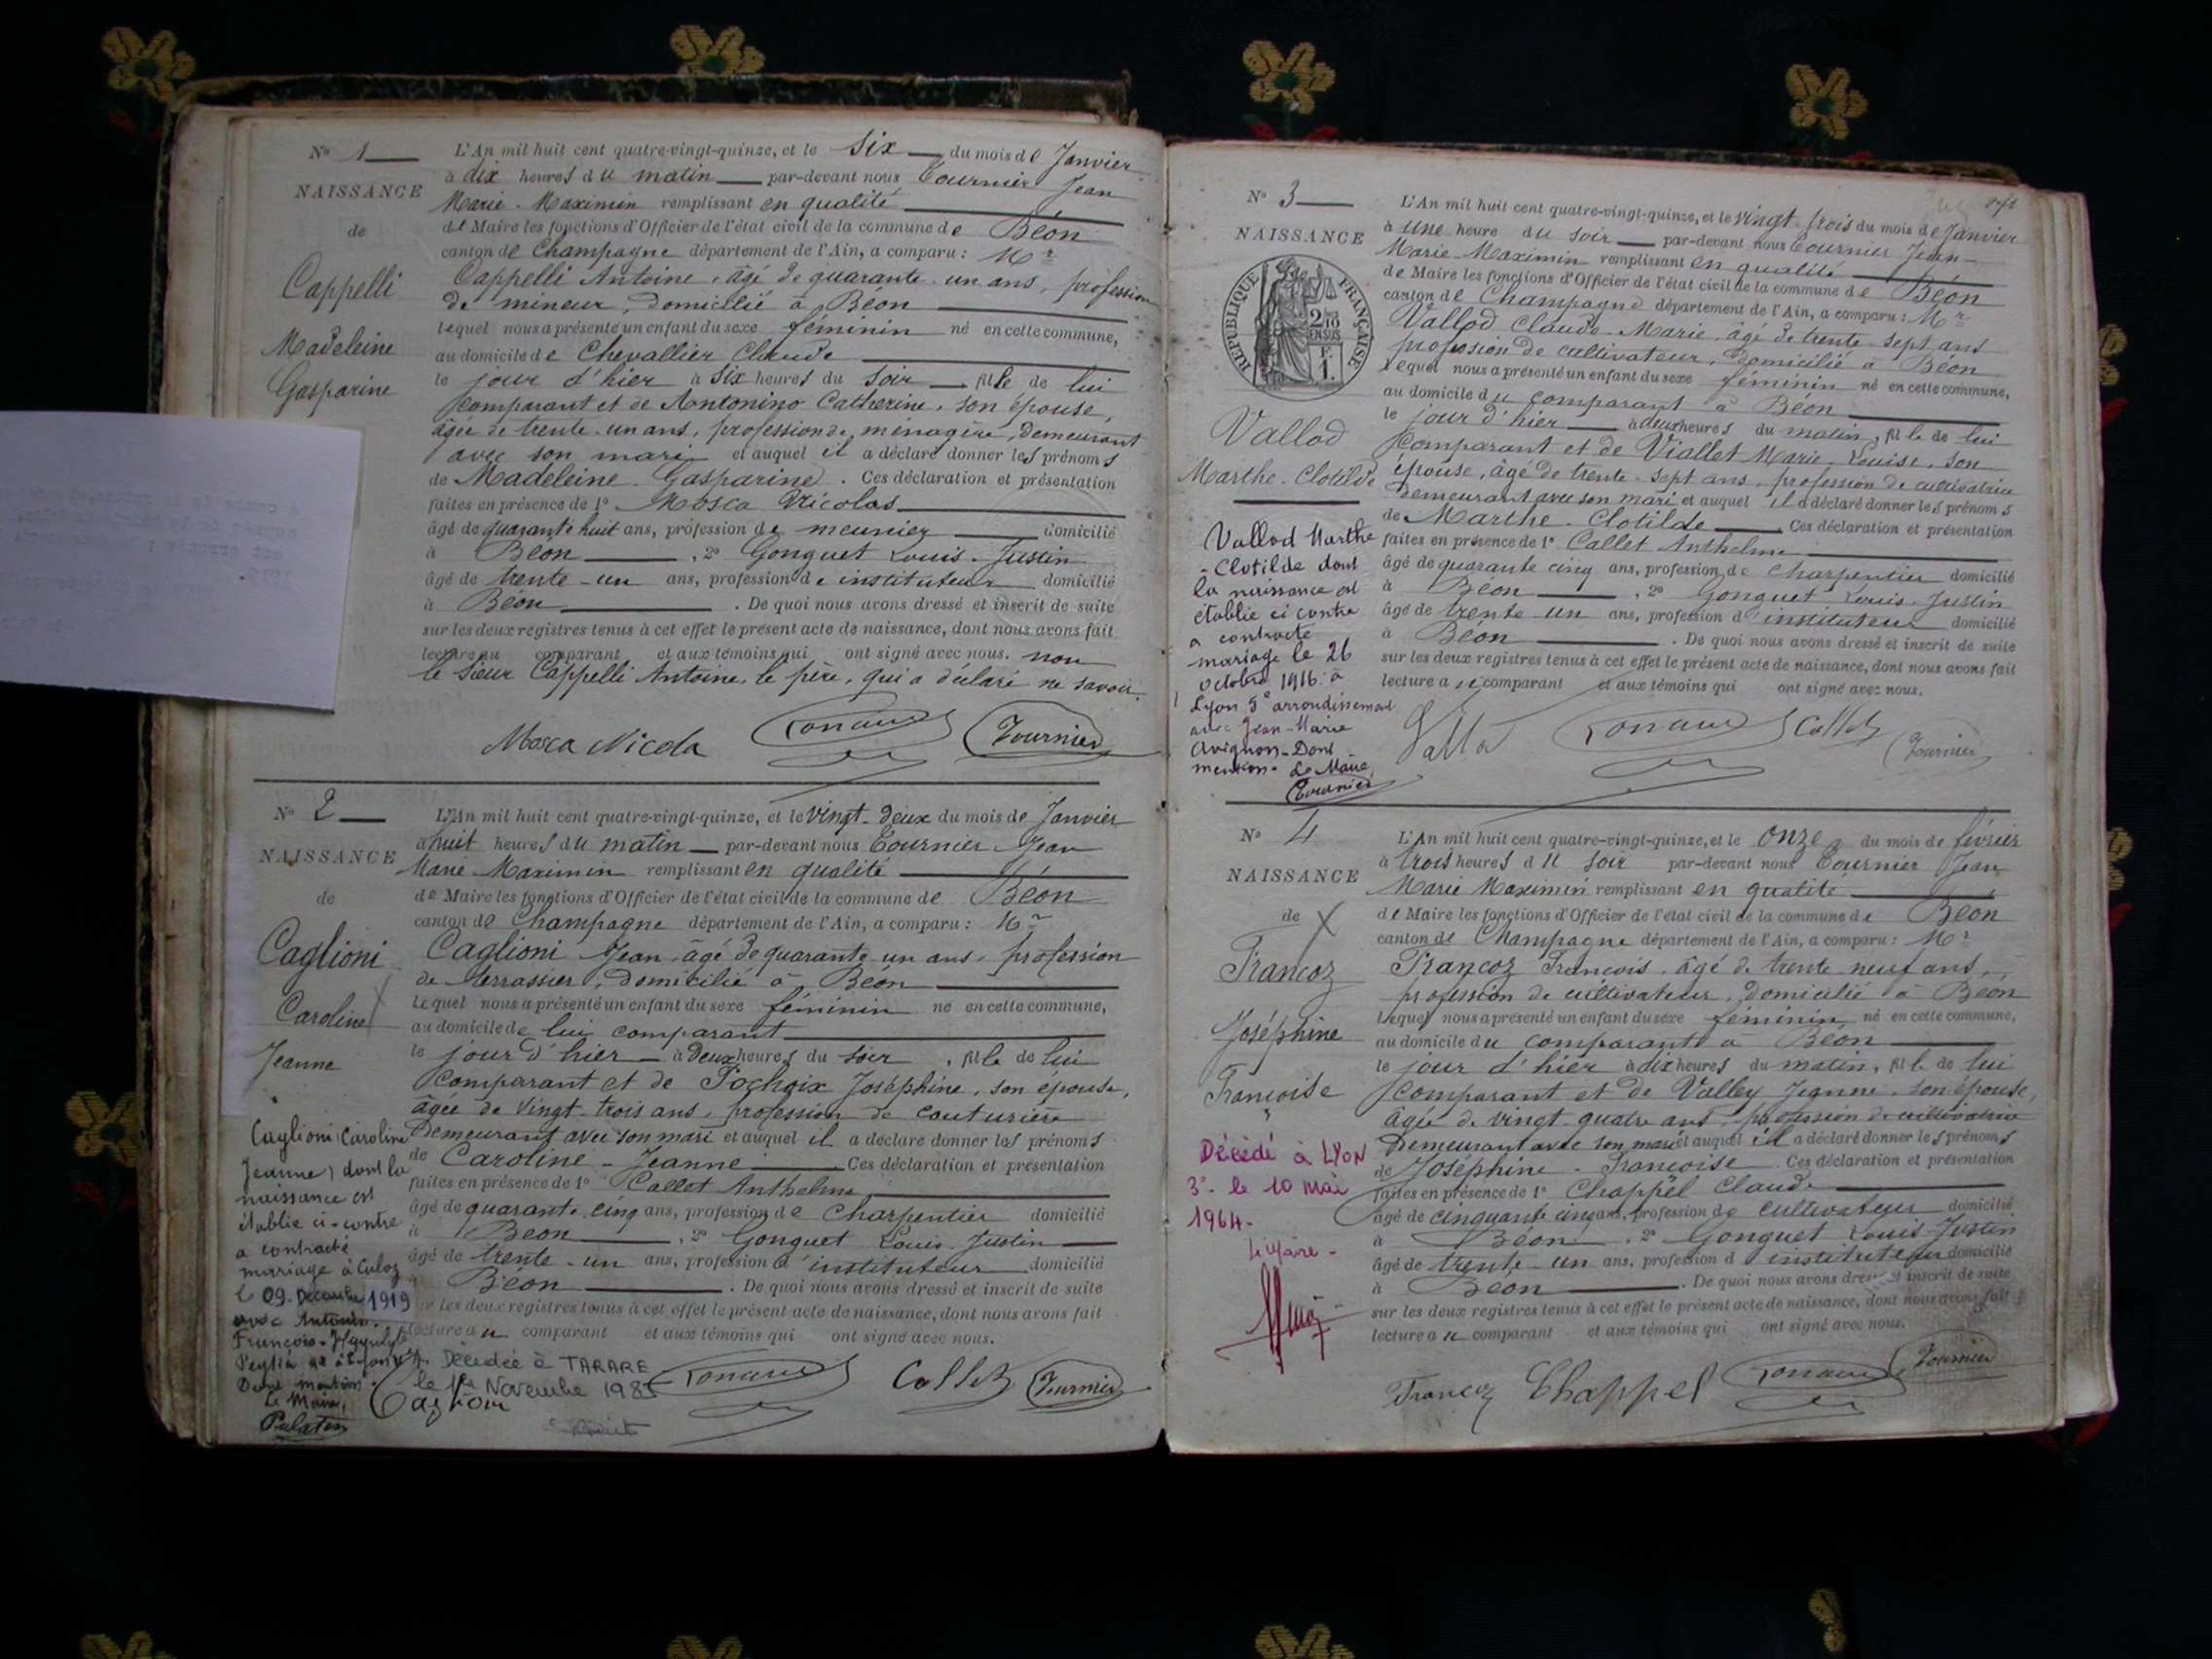 N° 1
NAISSANCE
de
Cappelli
Madeleine
Gasparine
L'An mil huit cent quatre-vingt-quinze, et le six du mois de Janvier
à dix heures du matin par-devant nous Tournier Jean
Marie-Maximin remplissant en qualité
de Maire les fonctions d'Officier de l'état civil de la commune de Béon
canton de Champagne département de l'Ain, a comparu : Mr
Cappelli Antoine, âgé de quarante-un ans, profession
de mineur, domicilié à Béon
lequel nous a présenté un enfant du sexe féminin né en cette commune,
au domicile de Chevallier Claude
le jour d'hier à six heures du soir, fille de lui
comparant et de Antonino Catherine, son épouse,
âgée de trente-un ans, profession de ménagère, demeurant
avec son mari et auquel il a déclaré donner les prénoms
de Madeleine-Gasparine. Ces déclaration et présentation
faites en présence de 1° Mosca Nicolas
âgé de quarante huit ans, profession de meunier domicilié
à Béon, 2° Gonguet Louis-Justin
âgé de trente-un ans, profession d'instituteur domicilié
à Béon. De quoi nous avons dressé et inscrit de suite
sur les deux registres tenus à cet effet le présent acte de naissance, dont nous avons fait
lecture au comparant et aux témoins qui ont signé avec nous. non
le sieur Cappelli Antoine, le père, qui a déclaré ne savoir.
Mosca Nicola Tournier
N° 2
NAISSANCE
de
Caglioni
Caroline
Jeanne
L'An mil huit cent quatre-vingt-quinze, et le vingt-deux du mois de Janvier
à huit heures du matin par-devant nous Tournier Jean
Marie-Maximin remplissant en qualité
de Maire les fonctions d'Officier de l'état civil de la commune de Béon
canton de Champagne département de l'Ain, a comparu : Mr
Caglioni Jean, âgé de quarante-un ans, profession
de terrassier, domicilié à Béon
lequel nous a présenté un enfant du sexe féminin né en cette commune,
au domicile de lui comparant
le jour d'hier à deux heures du soir, fille de lui
comparant et de Pochoix Joséphine, son épouse,
âgée de vingt-trois ans, profession de couturière
demeurant avec son mari et auquel il a déclaré donner les prénoms
de Caroline-Jeanne Ces déclaration et présentation
faites en présence de 1° Callet Anthelme
âgé de quarante cinq ans, profession de charpentier domicilié
à Béon, 2° Gonguet Louis-Justin
âgé de trente-un ans, profession d'instituteur domicilié
Béon. De quoi nous avons dressé et inscrit de suite
sur les deux registres tenus à cet effet le présent acte de naissance, dont nous avons fait
lecture au comparant et aux témoins qui ont signé avec nous.
Caglioni Callet Tournier
Caglioni (Caroline
Jeanne) dont la
naissance est
établie ci-contre
a contracté
mariage à Culoz
le 09 Décembre 1919
avec Antonin
François-Hyppolyte
Dont mention.
Le Maire,
Décédée à TARARE
le 1er Novembre 1985
N° 3
NAISSANCE
RÉPUBLIQUE FRANÇAISE
Vallod
Marthe-Clotilde
L'An mil huit cent quatre-vingt-quinze, et le vingt-trois du mois de Janvier
à une heure du soir par-devant nous Tournier Jean-
Marie Maximin remplissant en qualité
de Maire les fonctions d'Officier de l'état civil de la commune de Béon
canton de Champagne département de l'Ain, a comparu : Mr
Vallod Claude-Marie, âgé de trente-sept ans
profession de cultivateur, domicilié à Béon
lequel nous a présenté un enfant du sexe féminin né en cette commune,
au domicile du comparant à Béon
le jour d'hier à deux heures du matin, fille de lui
comparant et de Viallet Marie-Louise, son
épouse, âgé de trente-sept ans, profession de cultivatrice
demeurant avec son mari et auquel il a déclaré donner les prénoms
de Marthe-Clotilde. Ces déclaration et présentation
faites en présence de 1° Callet Anthelme
âgé de quarante cinq ans, profession de charpentier domicilié
à Béon, 2° Gonguet Louis-Justin
âgé de trente un ans, profession d'instituteur domicilié
à Béon. De quoi nous avons dressé et inscrit de suite
sur les deux registres tenus à cet effet le présent acte de naissance, dont nous avons fait
lecture au comparant et aux témoins qui ont signé avec nous.
Callet Tournier
Vallod Marthe
-Clotilde dont
la naissance est
établie ci contre
a contracté
mariage le 26
octobre 1916 à
Lyon 5e arrondissement
avec Jean-Marie
Avignon-Dont
mention. Le Maire,
Tournier
N° 4
NAISSANCE
de
Françoz
Joséphine
Françoise
L'An mil huit cent quatre-vingt-quinze, et le onze du mois de février
à trois heures du soir par-devant nous Tournier Jean
Marie Maximin remplissant en qualité
de Maire les fonctions d'Officier de l'état civil de la commune de Béon
canton de Champagne département de l'Ain, a comparu : Mr
Françoz François, âgé de trente-neuf ans,
profession de cultivateur, domicilié à Béon
lequel nous a présenté un enfant du sexe féminin né en cette commune,
au domicile du comparant à Béon
le jour d'hier à dix heures du matin, fille de lui
comparant et de Valley Jeanne, son épouse,
âgée de vingt-quatre ans, profession de cultivatrice
demeurant avec son mari et auquel il a déclaré donner les prénoms
de Joséphine-Françoise. Ces déclaration et présentation
faites en présence de 1° Chappel Claude
âgé de cinquante cinq ans, profession de cultivateur domicilié
à Béon, 2° Gonguet Louis-Justin
âgé de trente-un ans, profession d'instituteur domicilié
à Béon. De quoi nous avons dressé et inscrit de suite
sur les deux registres tenus à cet effet le présent acte de naissance, dont nous avons fait
lecture au comparant et aux témoins qui ont signé avec nous.
Françoz Chappel Tournier
Décédé à LYON
3e le 10 mai
1964-
Le Maire-